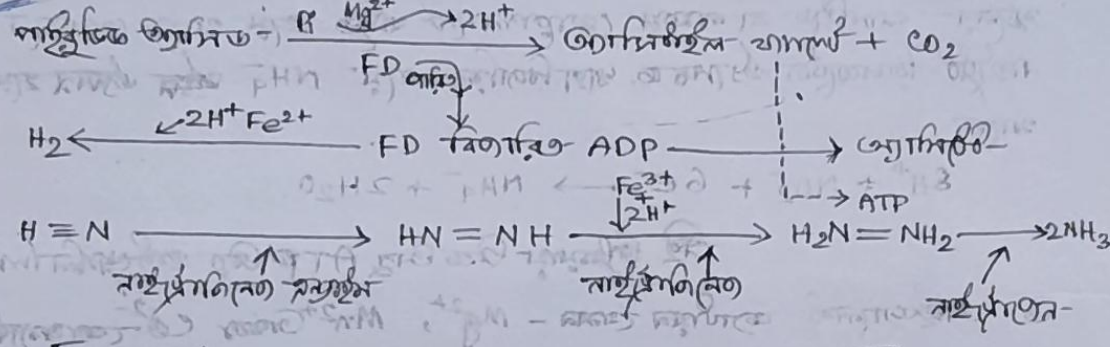 পাইরুভিক অ্যাসিড + Pi Mg²⁺ → 2H⁺ → অ্যাসিটাইল ফসফেট + CO₂
FD জারিত
H₂ ← 2H⁺ Fe²⁺ FD বিজারিত ADP → অ্যাসিটেট
Fe³⁺
2H⁺ → ATP
H ≡ N → HN = NH → H₂N = NH₂ → 2NH₃
নাইট্রোজিনেজ এনজাইম নাইট্রোজিনেজ নাইট্রোজেন